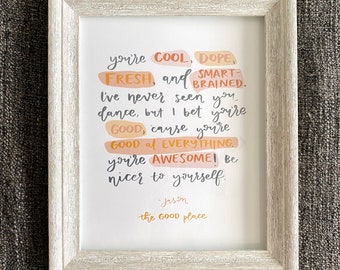 you're COOL, DOPE,
FRESH, and SMART-
BRAINED.
I've never seen you
dance, but I bet you're
GOOD, cause you're
GOOD at EVERYTHING.
you're AWESOME! Be
nicer to yourself.
- jason
the GOOD place